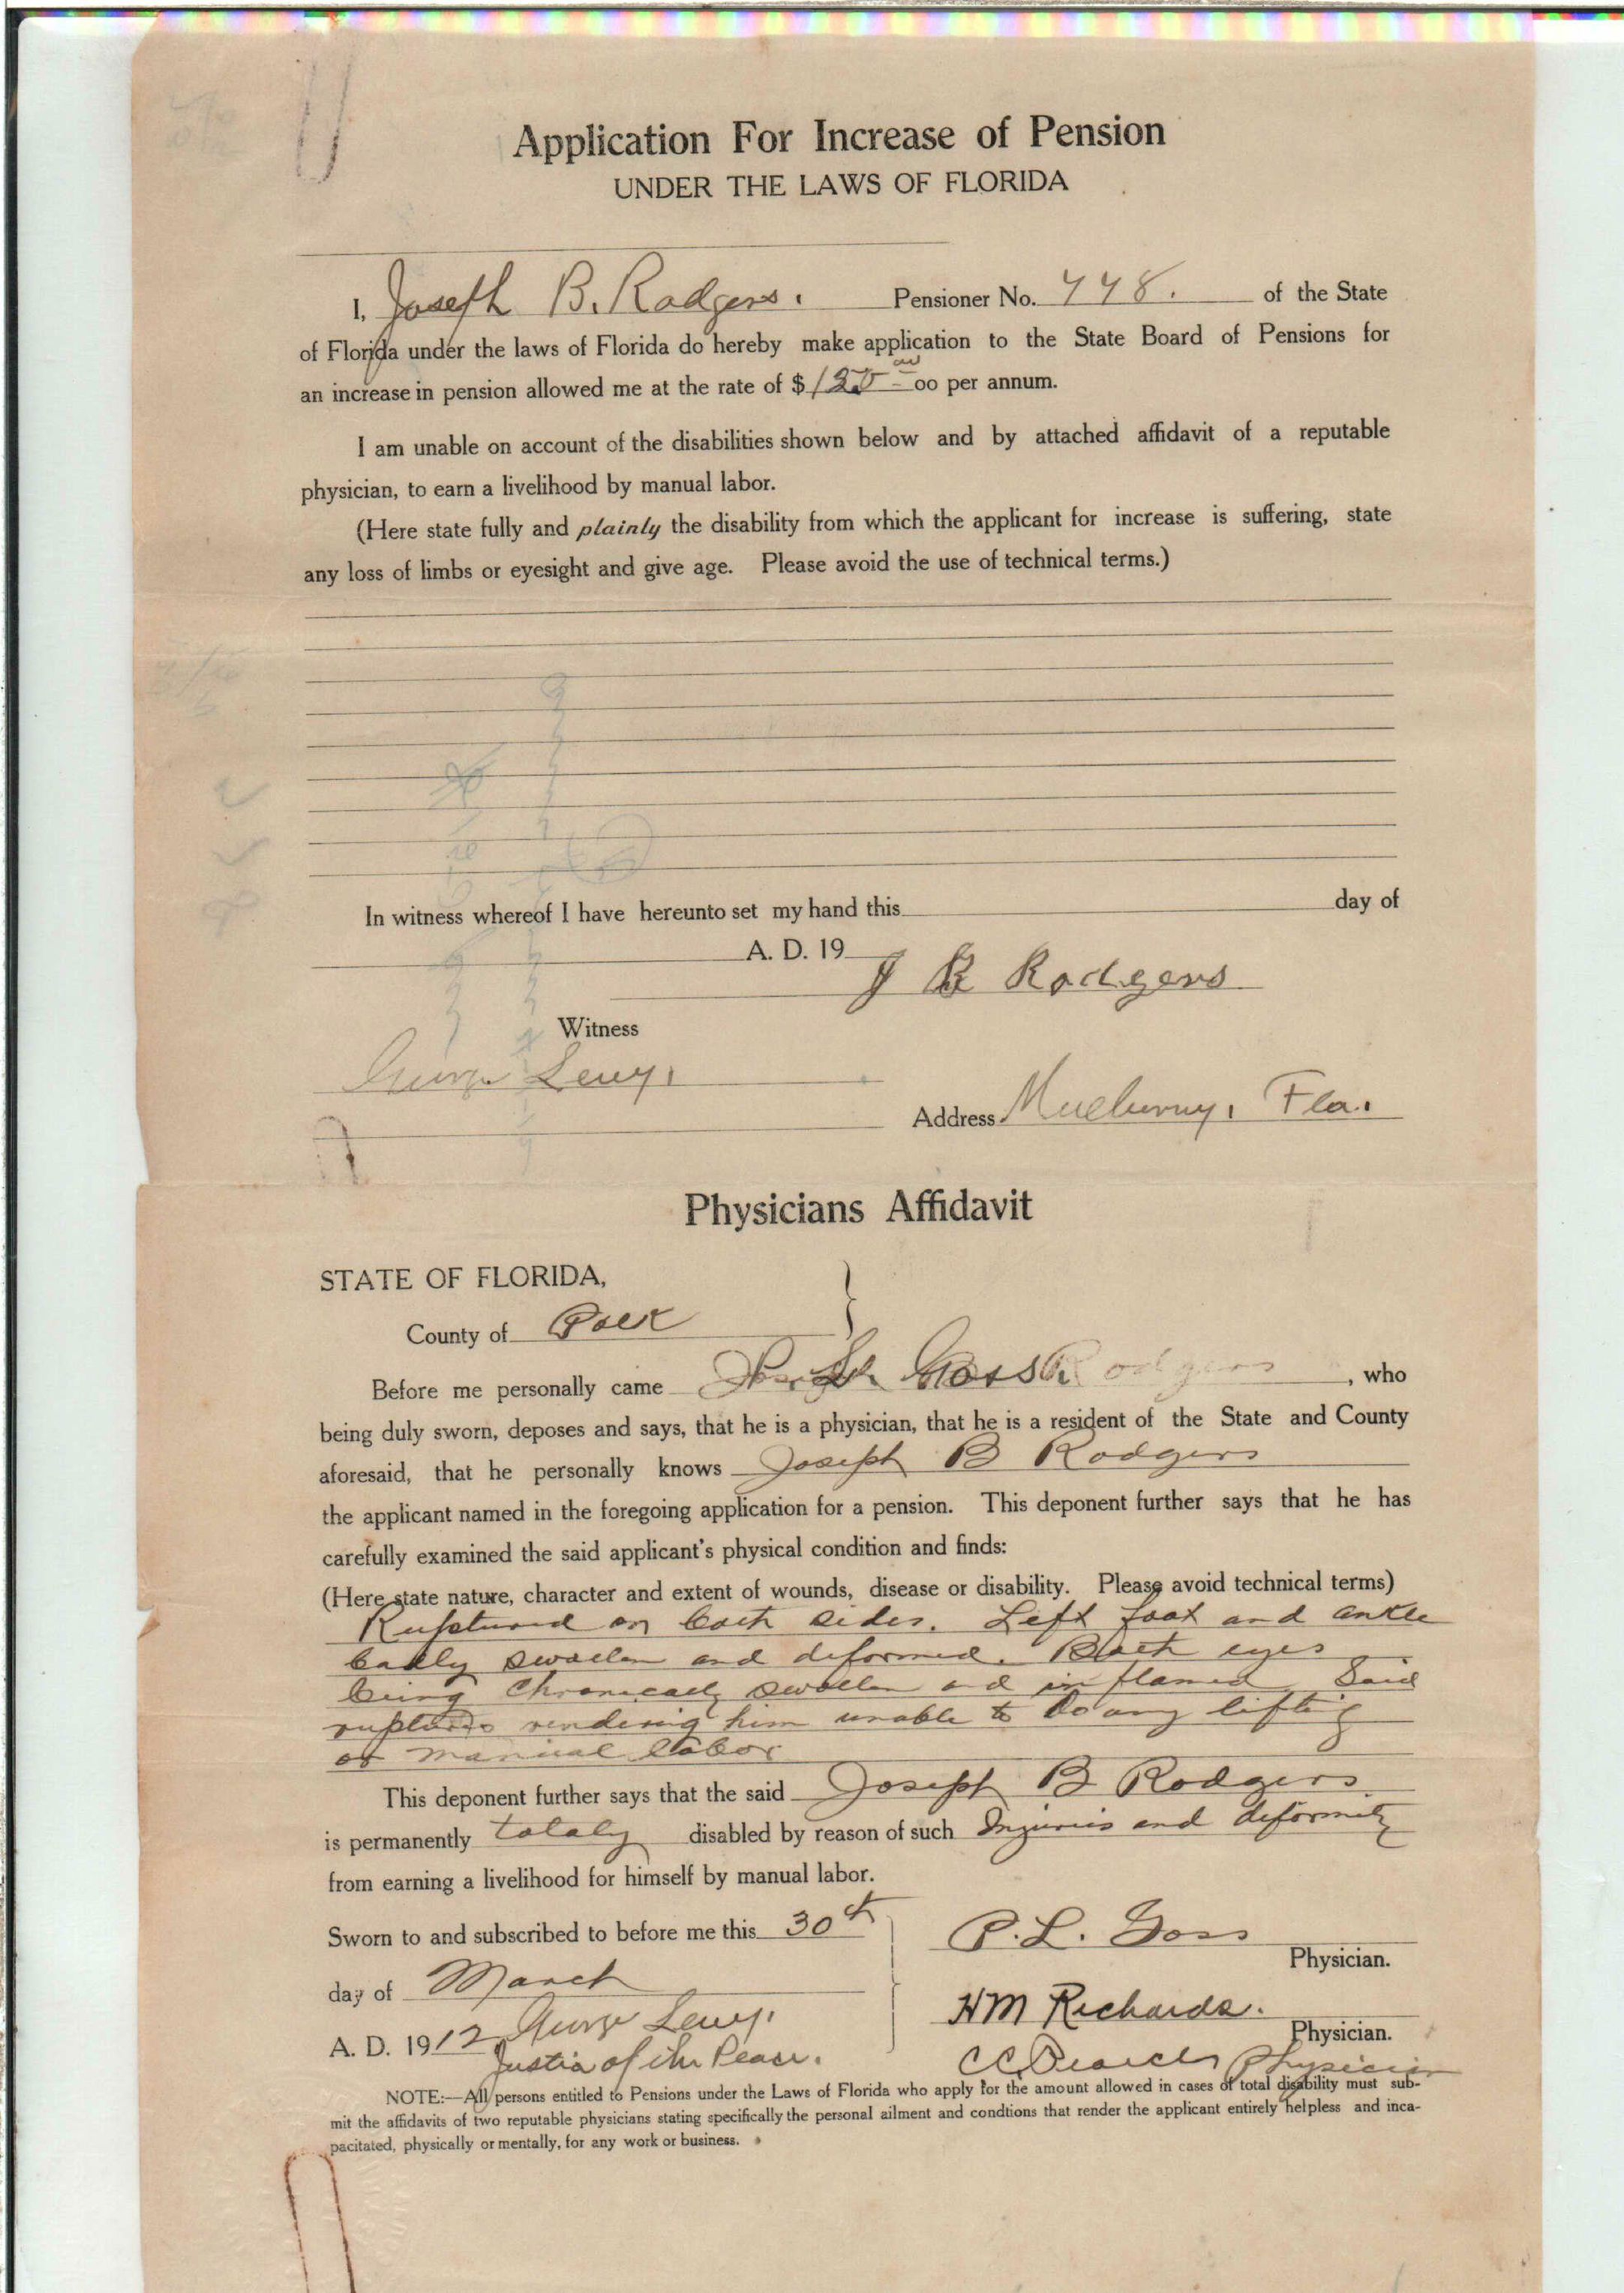 Application For Increase of Pension
UNDER THE LAWS OF FLORIDA
I, Joseph B. Rodgers. Pensioner No. 448. of the State
of Florida under the laws of Florida do hereby make application to the State Board of Pensions for
an increase in pension allowed me at the rate of $ 120 oo per annum.
I am unable on account of the disabilities shown below and by attached affidavit of a reputable
physician, to earn a livelihood by manual labor.
(Here state fully and plainly the disability from which the applicant for increase is suffering, state
any loss of limbs or eyesight and give age. Please avoid the use of technical terms.)
In witness whereof I have hereunto set my hand this day of
A. D. 19
J B Rodgers
Witness
George Levy.
Address Mulberry, Fla.
Physicians Affidavit
STATE OF FLORIDA,
County of Polk
Before me personally came Goss Rodgers, who
being duly sworn, deposes and says, that he is a physician, that he is a resident of the State and County
aforesaid, that he personally knows Joseph B Rodgers
the applicant named in the foregoing application for a pension. This deponent further says that he has
carefully examined the said applicant's physical condition and finds:
(Here state nature, character and extent of wounds, disease or disability. Please avoid technical terms)
Ruptured on both sides. Left foot and ankle
badly swollen and deformed. Both eyes
being chronically swollen and inflamed Said
ruptures rendering him unable to do any lifting
or manual labor
This deponent further says that the said Joseph B Rodgers
is permanently totaly disabled by reason of such Injuries and deformity
from earning a livelihood for himself by manual labor.
Sworn to and subscribed to before me this 30th
P. L. Goss
Physician.
day of March
HM Richards.
Physician.
A. D. 1912 George Levy.
Justice of the Peace.
CC Physician
NOTE:—All persons entitled to Pensions under the Laws of Florida who apply for the amount allowed in cases of total disability must sub-
mit the affidavits of two reputable physicians stating specifically the personal ailment and condtions that render the applicant entirely helpless and inca-
pacitated, physically or mentally, for any work or business.